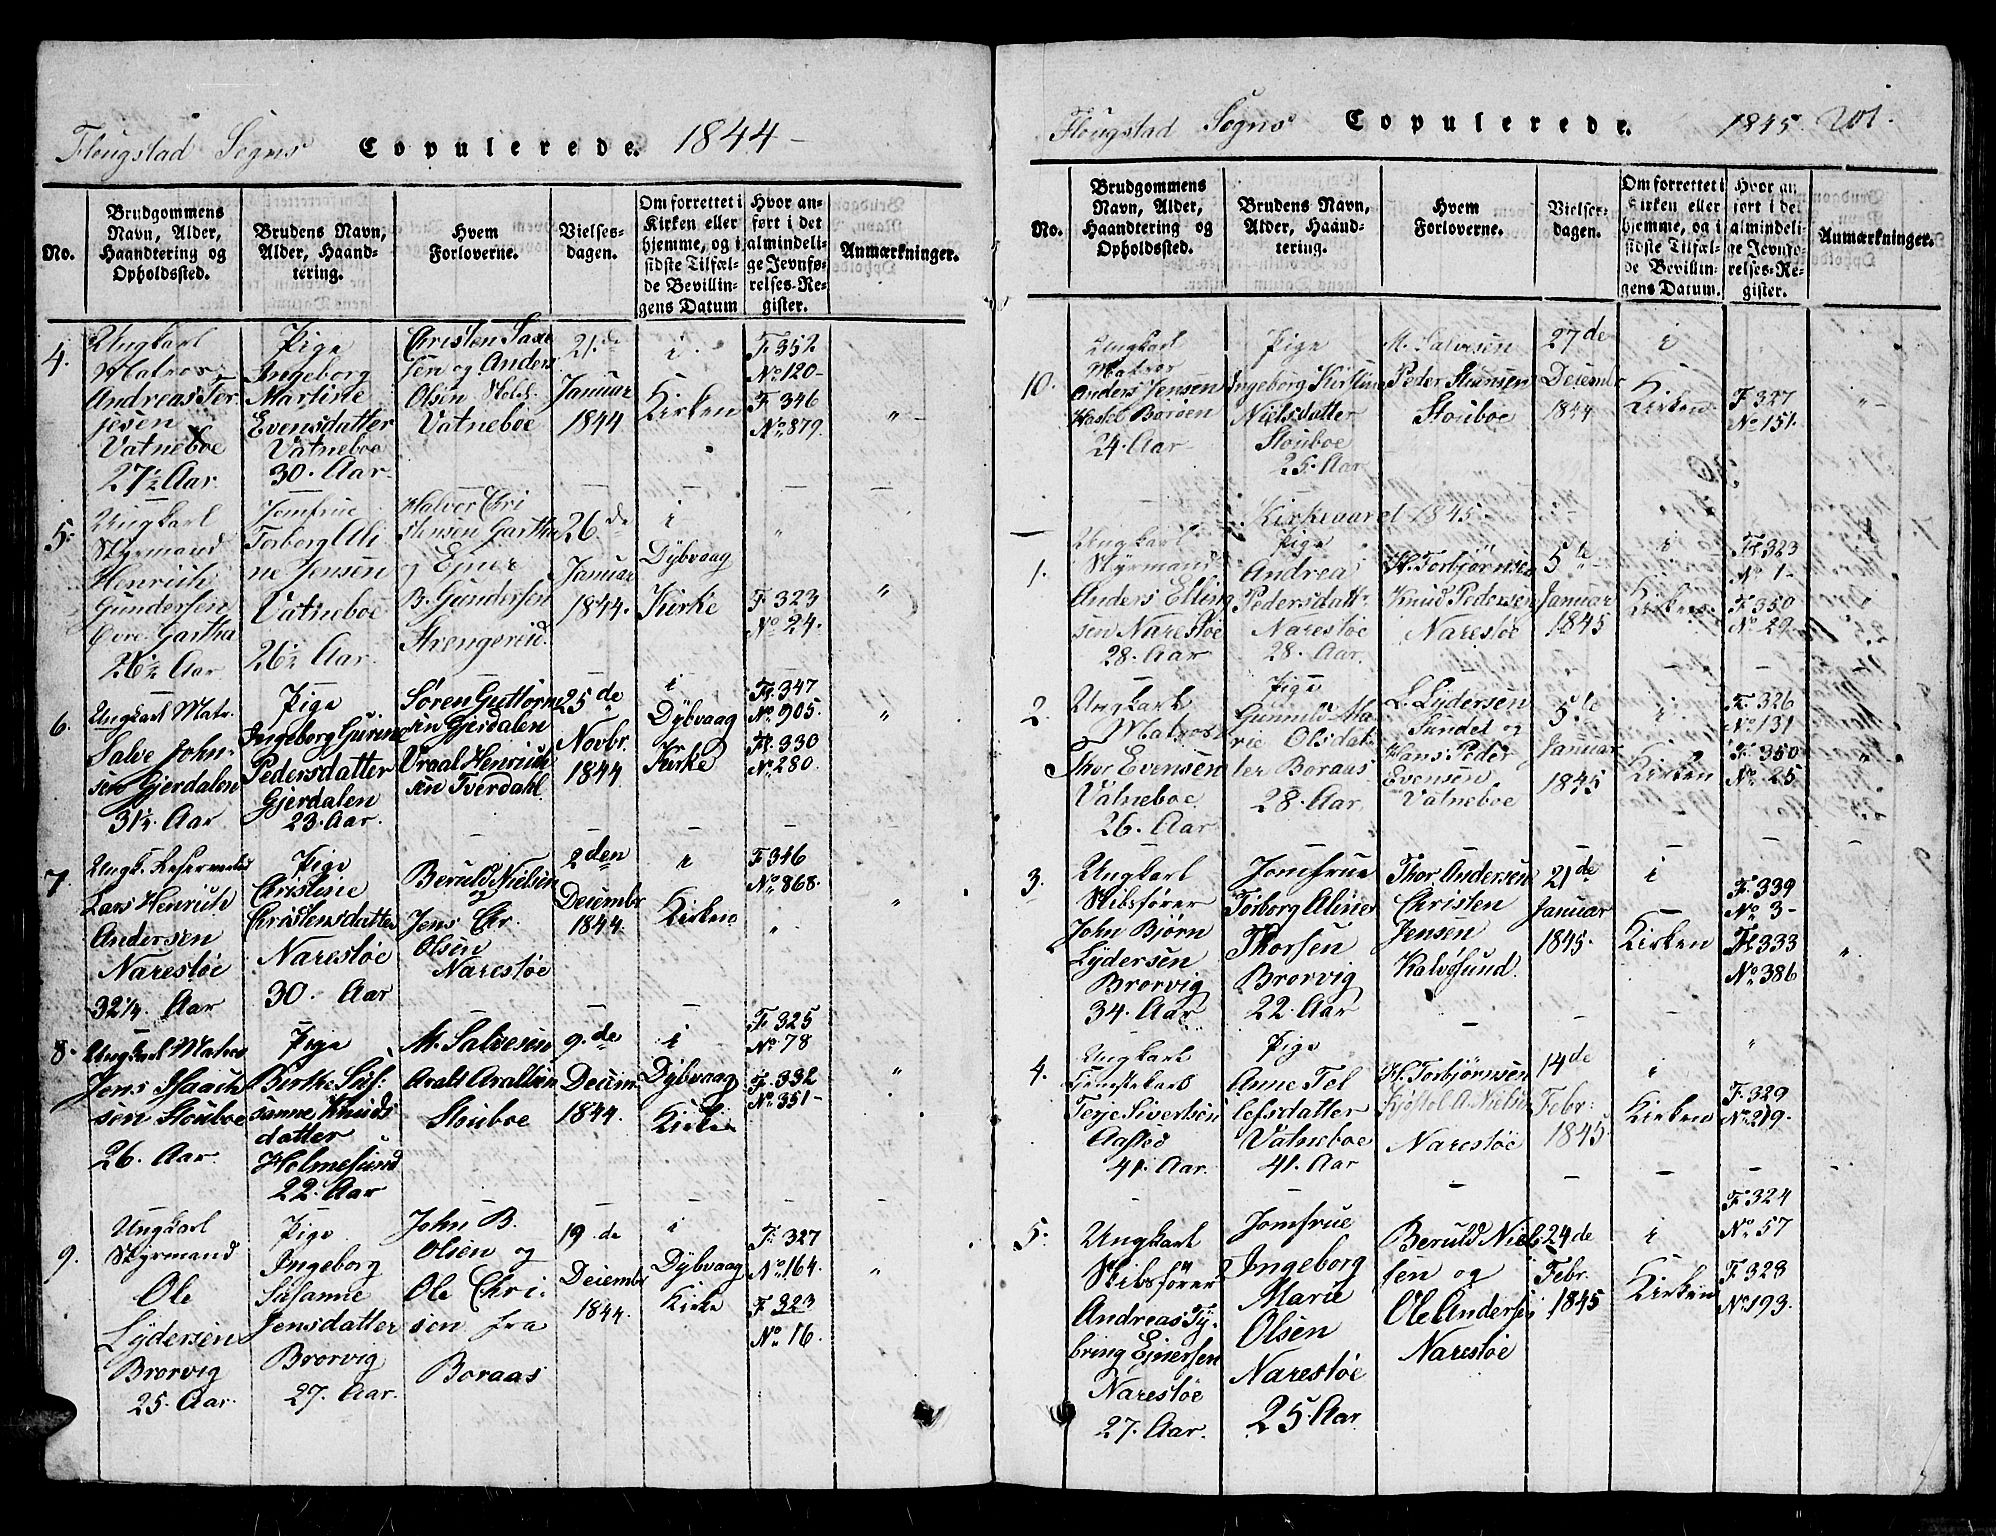 Flougstad Sogns Copulerede. 1844-
No.
Brudgommens Navn, Alder, Haandtering og Opholdssted.
Brudens Navn, Alder, Haandtering.
Hvem Forloverne.
Vielses-dagen.
Om forrettet i Kirken eller hjemme, og i sidste Tilfælde Bevillingens Datum
Hvor anført i det almindelige Jevnførelses-Register.
Anmærkninger.
4.
Ungkarl
Matros
Andreas Ter
jesen
Vatneboe
27½ Aar.
Pige
Ingeborg
Martine
Evensdatter
Vatneboe
30. Aar.
Christen
sen og Anders
Olsen
Vatneboe
21.de
Januar
1844
i
Kirken
F. 352
No. 120-
F. 346
No. 879.
"
5.
Ungkarl
Styrmand
Henrich
Gundersen
Gartha
26½ Aar
Jomfrue
Torborg Ali
ne Jensen
Vatneboe
26½ Aar.
Halvor Chri
stensen Gartha
og Ejner
B. Gundersen
Strengereid.
26.de
Januar
1844.
i
Dybvaag
Kirke
F. 323
No. 24.
"
6.
Ungkarl Matr.
Salve John-
sen Gjerdalen
31½. Aar
Pige
Ingeborg Gurine
Pedersdatter
Gjerdalen
23. Aar.
Søren Guttorm
sen Gjerdalen
Vraal Henrich
sen Tverdahl.
25 de
Novbr.
1844
i
Dybvaag
Kirke
F. 347
No. 905.
F. 330
No. 280.
"
7.
Lars Henrich
Andersen
Narestøe
32¼ Aar
Pige
Christine
Christensdatter
Narestøe
30. Aar
Beruld Nielsen
og
Jens Chr.
Olsen
Narestøe
2 den
Decembr
1844.
i
Kirken
F. 346
No. 868.
"
8.
Ungkarl Matros
Jens Isaach
sen Stouboe
26. Aar.
Pige
Birthe Sus:
sanne Knuds
datter
Holmesund
22. Aar
M. Salvesen
Aralt Araltsen
Stouboe
9. de
Decem.
1844.
i
Dybvaag
Kirke
F. 325
No. 78
F. 332
No. 351-
"
9.
Ungkarl
Styrmand
Ole
Lydersen
Brorvig
25. Aar.
Pige
Ingeborg
Susanne
Jensdatter
Brorvig
27. Aar.
John B.
Olsen og
Ole Chri.
sen fra
Boraas
19. de
Decembr
1844.
i
Dybvaag
Kirke
F. 327
No. 164.
F. 323
No. 16.
"
Flougstad Sogns Copulerede. 1845. 201.
No.
Brudgommens Navn, Alder, Haandtering og Opholdssted.
Brudens Navn, Alder, Haandtering.
Hvem Forloverne.
Vielses-dagen.
Om forrettet i Kirken eller hjemme, og i sidste Tilfælde Bevillingens Datum.
Hvor anført i det almindelige Jevnførelses-Register.
Anmærkninger.
10.
Ungkarl
Matros
Anders Jensen
Borøen
24. Aar
Pige
Ingeborg Kirstine
Nielsdatter
Stouboe
25. Aar
M. Salvesen
Peder
Stouboe
27 de
Decembr
1844
i
Kirken
F. 327
No. 151.
"
Kirkeaaret 1845.
1.
Ungkarl
Styrmand
Anders Elling
sen Narestøe
28. Aar
Pige
Andrea
Pedersdattr
Narestøe
28. Aar.
H. Torbjørnsen
Knud Pedersen
Narestøe
5 te
Januar
1845
i
Kirken
F. 323
No. 1-
F. 350
No. 29
"
2.
Ungkarl
Matros
Thor Evensen
Vatneboe.
26. Aar
Pige
Gunnild Ma
rie Olsdat
ter Boraas
28. Aar.
L. Lydersen
Sundet og
Hans Peder
Evensen
Vatneboe
5. te
Januar
1845
i
Kirken
F. 326
No. 131
F. 350
No. 25
"
3.
Ungkarl
Skibsfører
John Bjørn
Lydersen
Brorvig
34. Aar
Jomfrue
Torborg Aline
Thorsen
Brorvig
22. Aar
Thor Andersen
Christen
Jensen
Kalvøsund.
21 de
Januar
1845.
i
Kirken
F. 339
No. 3-
F. 333
No. 386
"
4.
Ungkarl
Terje Sivertsen
Aasted
41. Aar.
Pige
Anne Tel
lefsdatter
Vatneboe
41. Aar
H. Torbjørnsen
Kjøstol A. Nielsen
Narestøe
14 de
Febr:
1845.
i
Kirken
F. 329
No. 219.
"
5.
Ungkarl
Skibsfører
Andreas Ty.
bring Ejnersen
Narestøe
27. Aar.
Jomfrue
Ingeborg
Marie
Olsen
Narestøe
25 Aar
Beruld Niel-
sen og
Ole Andersen
Narestøe
24 de
Febr.
1845
i
Kirken
F. 324
No. 57
F. 328
No. 193.